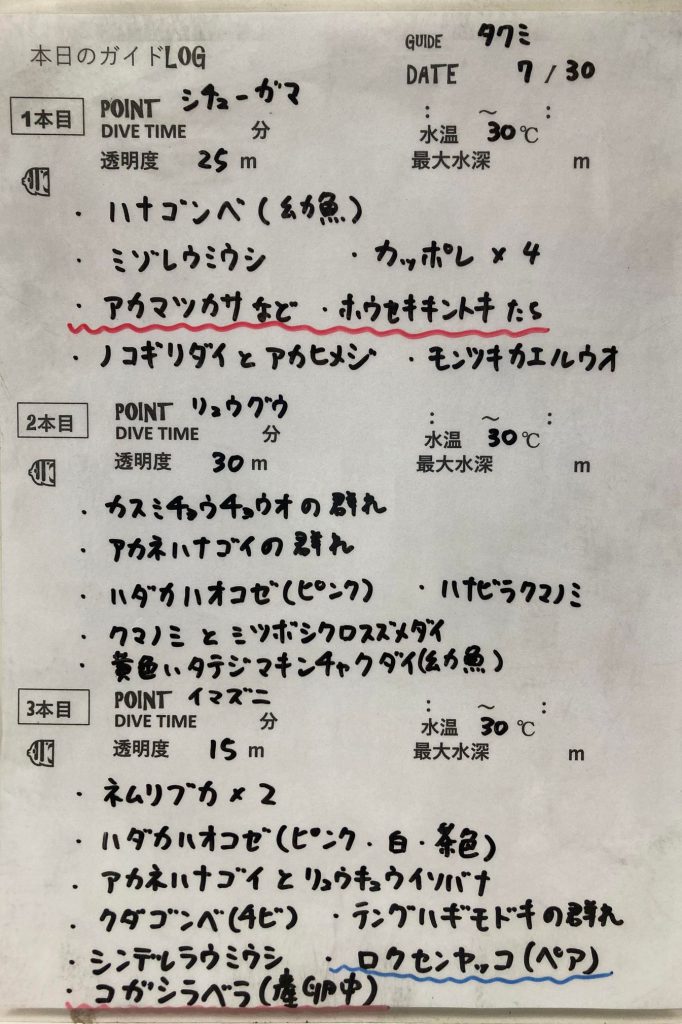 本日のガイドLOG
GUIDE タクミ
DATE 7/30
1本目 POINT シチューガマ : ～ :
DIVE TIME 分 水温 30℃
透明度 25 m 最大水深 m
・ハナゴンベ(幼魚)
・ミゾレウミウシ ・カッポレ×4
・アカマツカサなど ・ホウセキキントキたち
・ノコギリダイとアカヒメジ ・モンツキカエルウオ
2本目 POINT リュウグウ : ～ :
DIVE TIME 分 水温 30℃
透明度 30 m 最大水深 m
・カスミチョウチョウオの群れ
・アカネハナゴイの群れ
・ハダカハオコゼ(ピンク) ・ハナビラクマノミ
・クマノミとミツボシクロスズメダイ
・黄色いタテジマキンチャクダイ(幼魚)
3本目 POINT イマズニ : ～ :
DIVE TIME 分 水温 30℃
透明度 15 m 最大水深 m
・ネムリブカ×2
・ハダカハオコゼ(ピンク・白・茶色)
・アカネハナゴイとリュウキュウイソバナ
・クダゴンベ(チビ) ・テングハギモドキの群れ
・シンデレラウミウシ ・ロクセンヤッコ(ペア)
・コガシラベラ(産卵中)